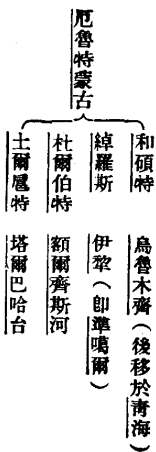 厄魯特蒙古
和碩特 烏魯木齊(後移於青海)
綽羅斯 伊犂(卽準噶爾)
杜爾伯特 額爾齊斯河
土爾扈特 塔爾巴哈台